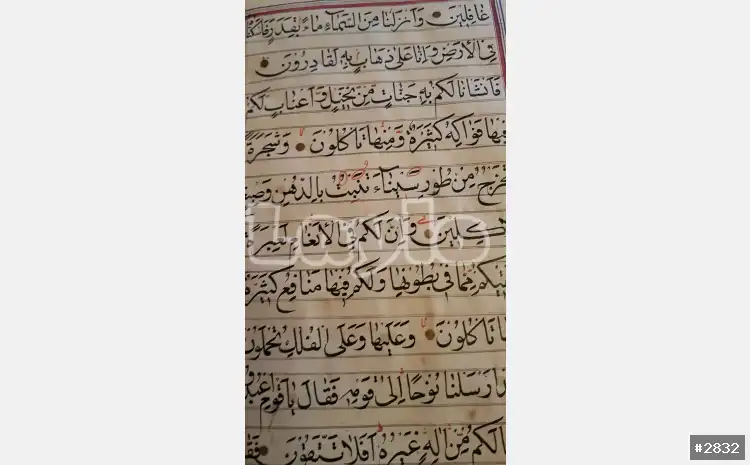 غَافِلِينَ وَأَنزَلْنَا مِنَ السَّمَاءِ مَاءً بِقَدَرٍ فَأَسْكَنَّا
فِي الْأَرْضِ وَإِنَّا عَلَىٰ ذَهَابٍ بِهِ لَقَادِرُونَ
فَأَنشَأْنَا لَكُم بِهِ جَنَّاتٍ مِّن نَّخِيلٍ وَأَعْنَابٍ لَّكُمْ
فِيهَا فَوَاكِهُ كَثِيرَةٌ وَمِنْهَا تَأْكُلُونَ وَشَجَرَةً
تَخْرُجُ مِن طُورِ سَيْنَاءَ تَنبُتُ بِالدُّهْنِ وَصِبْغٍ
لِلْآكِلِينَ وَإِنَّ لَكُمْ فِي الْأَنْعَامِ لَعِبْرَةً
مِّمَّا فِي بُطُونِهَا وَلَكُمْ فِيهَا مَنَافِعُ كَثِيرَةٌ
تَأْكُلُونَ وَعَلَيْهَا وَعَلَى الْفُلْكِ تُحْمَلُونَ
أَرْسَلْنَا نُوحًا إِلَىٰ قَوْمِهِ فَقَالَ يَا قَوْمِ اعْبُدُوا
مَا لَكُم مِّنْ إِلَٰهٍ غَيْرُهُ أَفَلَا تَتَّقُونَ
#2832